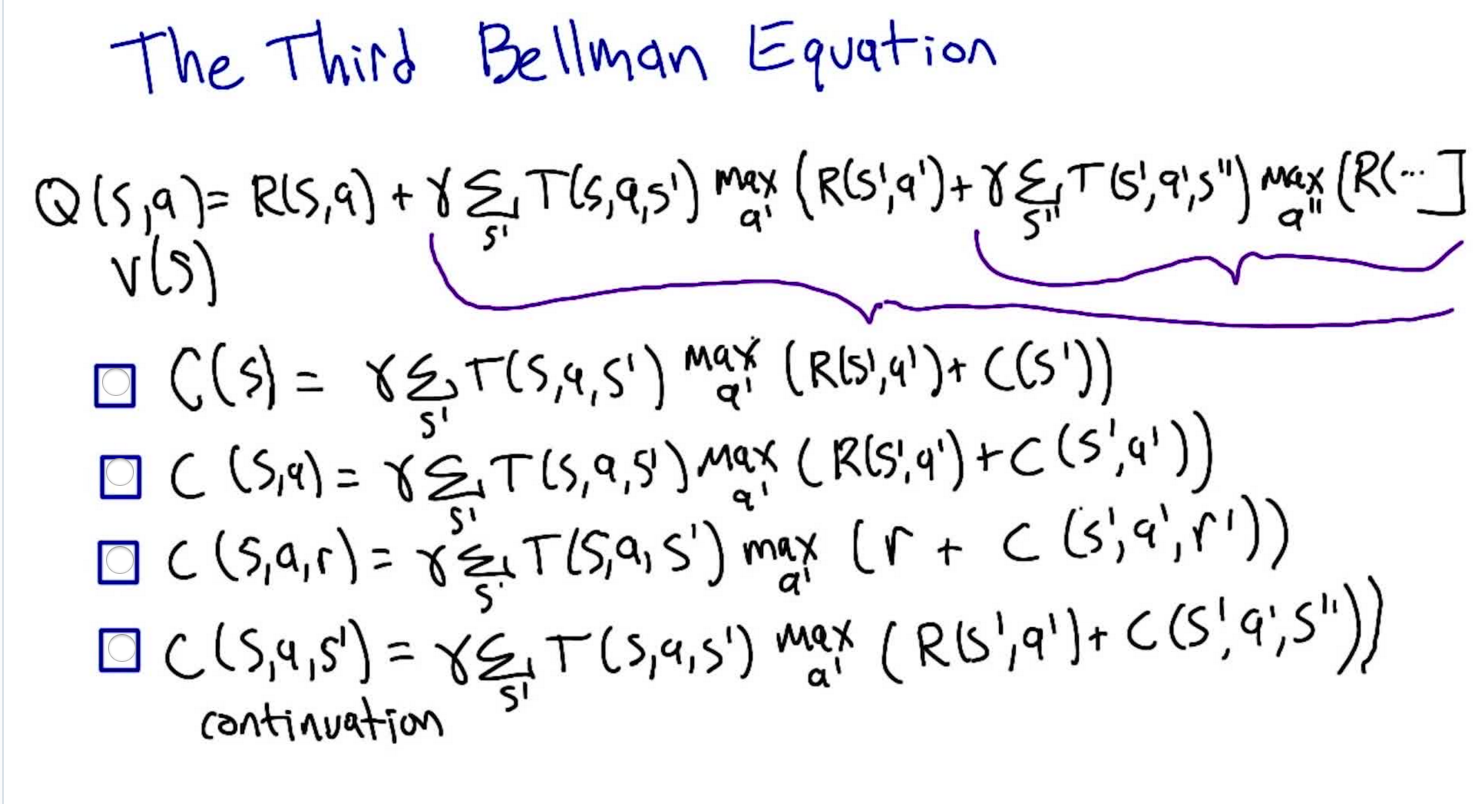 The Third Bellman Equation
Q(s,a)= R(s,a) + γ Σ_s' T(s,a,s') max_a' (R(s',a')+ γ Σ_s'' T(s',a',s'') max_a'' (R(...]
V(s)
C(s) = γ Σ_s' T(s,a,s') max_a' (R(s',a')+ C(s'))
C (s,a) = γ Σ_s' T(s,a,s') max_a' (R(s',a')+C(s',a'))
C (s,a,r) = γ Σ_s' T(s,a,s') max_a' (r + C (s',a',r'))
C(s,a,s') = γ Σ_s' T(s,a,s') max_a' (R(s',a')+ C(s',a',s''))
continuation